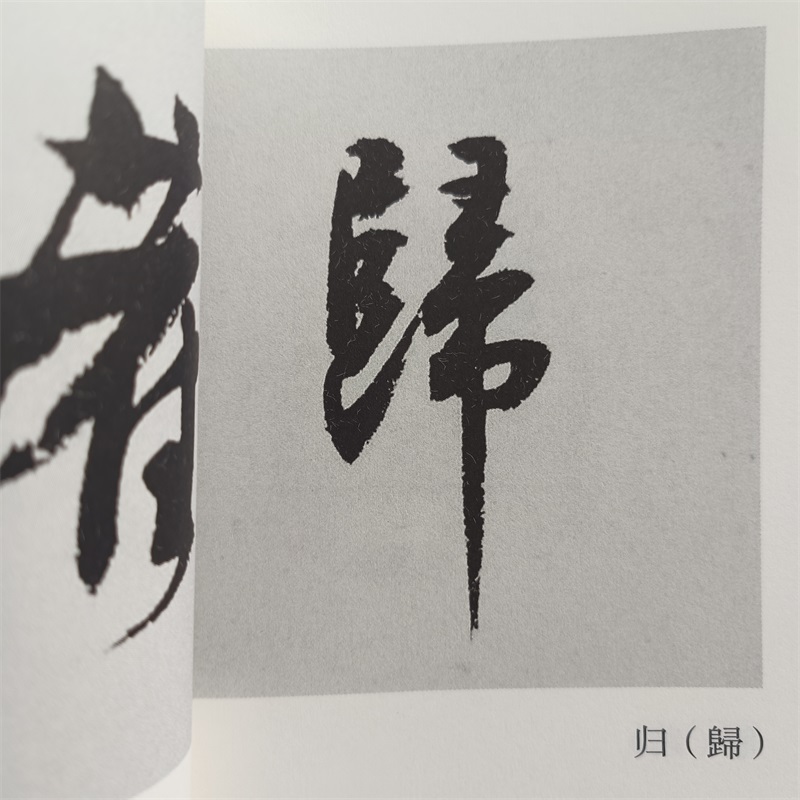 歸
归（歸）